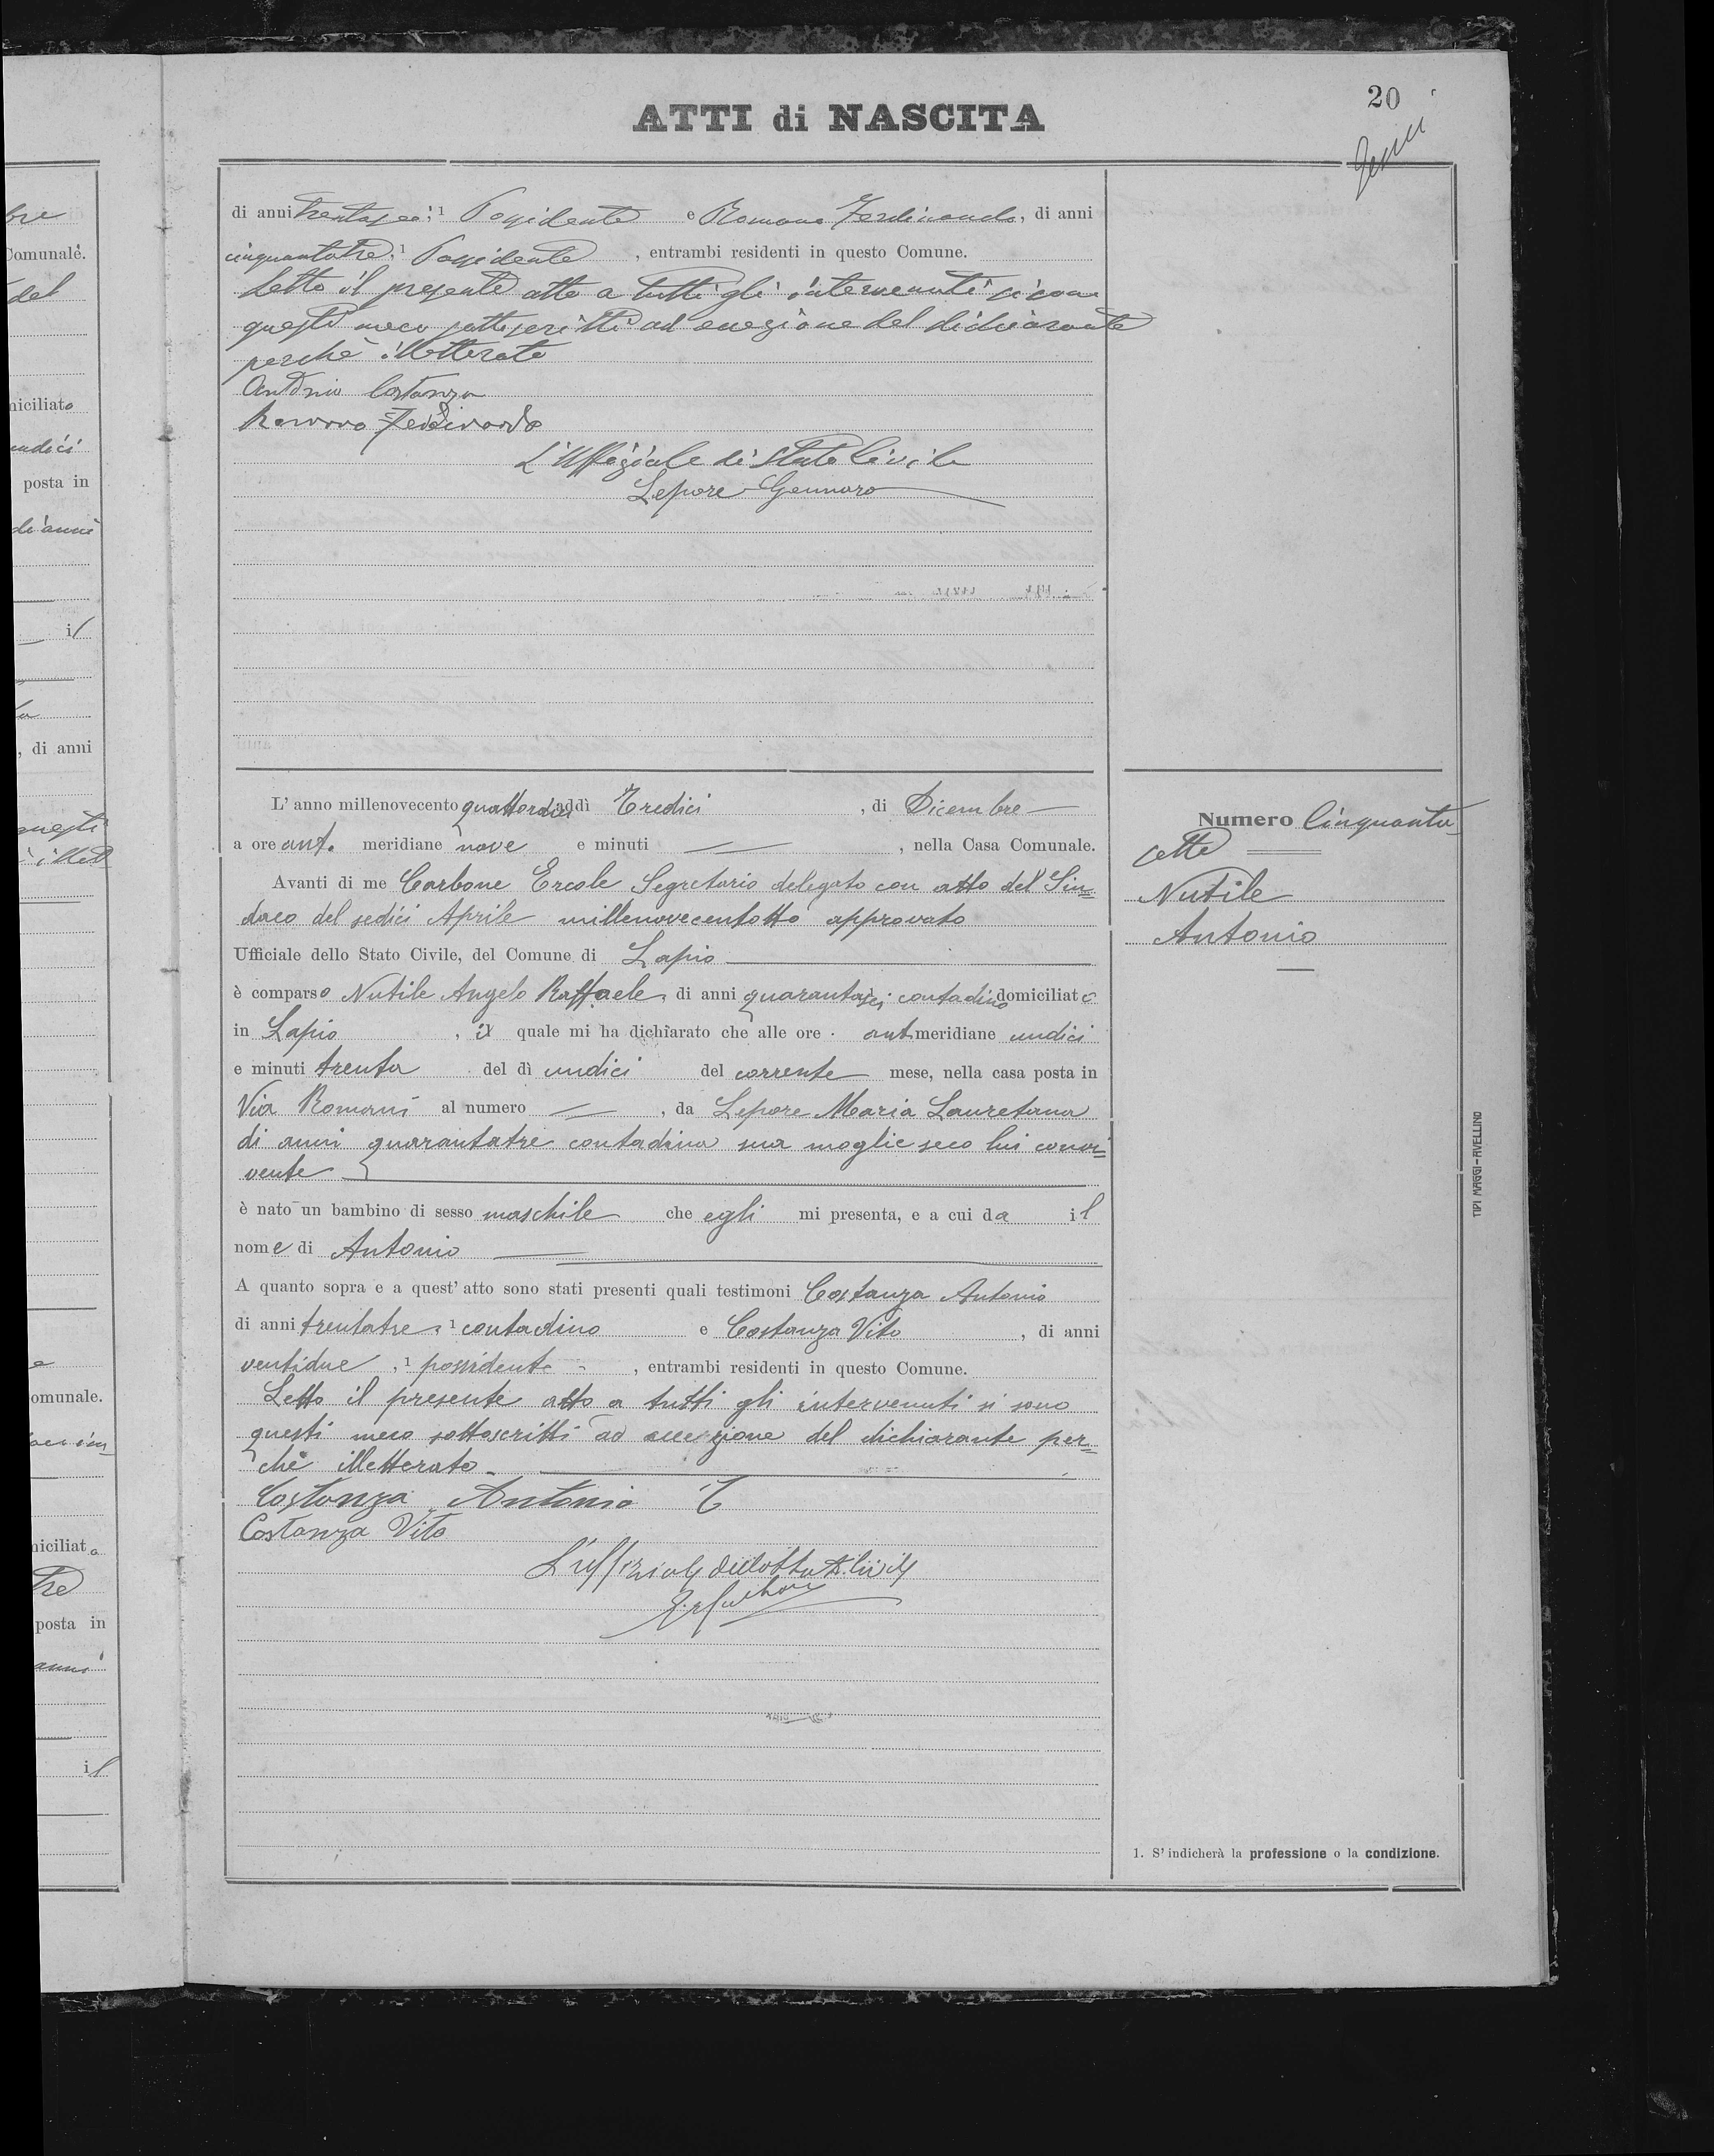 20
ATTI di NASCITA
di anni trentasei, 1 Possidente e Romano Ferdinando, di anni
cinquantatre, 1 Possidente, entrambi residenti in questo Comune.
Letto il presente atto a tutti gli intervenuti si sono
questi meco sottoscritti ad eccezione del dichiarante
perchè illetterato
Antonio Costanza
Romano Ferdinando
L'Uffiziale di Stato Civile
Lepore Gennaro
L' anno millenovecento quattordici addì Tredici, di Dicembre
a ore ant. meridiane nove e minuti —, nella Casa Comunale.
Avanti di me Carbone Ercole Segretario delegato con atto del Sin=
daco del sedici Aprile millenovecentotto approvato
Ufficiale dello Stato Civile, del Comune di Lapio
è comparso Nutile Angelo Raffaele, di anni quarantasei contadino domiciliato
in Lapio, il quale mi ha dichiarato che alle ore antimeridiane undici
e minuti trenta del dì undici del corrente mese, nella casa posta in
Via Romani al numero —, da Lepore Maria Lauretana
di anni quarantatre contadina sua moglie seco lui convi=
vente
è nato un bambino di sesso maschile che egli mi presenta, e a cui da il
nome di Antonio
A quanto sopra e a quest' atto sono stati presenti quali testimoni Costanza Antonio
di anni trentatre, 1 contadino e Costanza Vito, di anni
ventidue, 1 possidente, entrambi residenti in questo Comune.
Letto il presente atto a tutti gli intervenuti si sono
questi meco sottoscritti ad eccezione del dichiarante per=
chè illetterato.
Costanza Antonio
Costanza Vito
L'ufficiale dello Stato Civile
Numero Cinquanta
sette
Nutile
Antonio
1. S' indicherà la professione o la condizione.
TIPI MAGGI - AVELLINO
Comunale.
del
miciliato
undici
posta in
di anni
il
, di anni
questi
omunale.
miciliato
posta in
anni
il